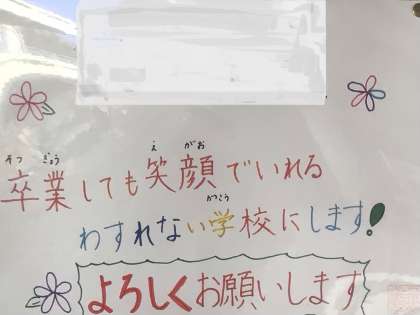 そつ ぎょう え がお
卒業しても笑顔でいれる
がっこう
わすれない学校にします!
よろしくお願いします